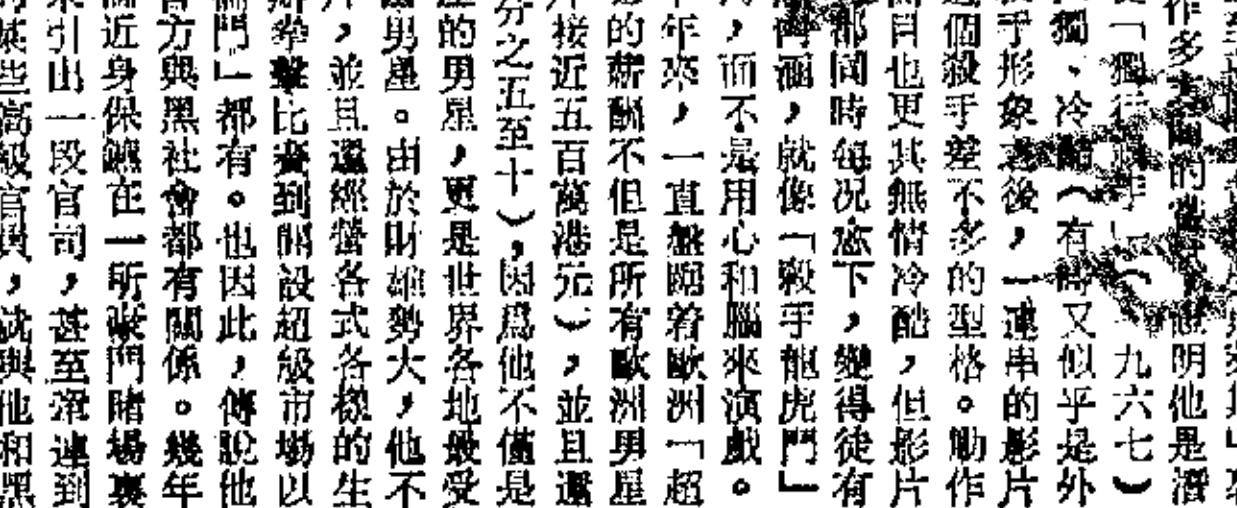 作多方面的 明他是潛
從「獨行殺手」（一九六七）
獨、冷酷（有時又似乎是外
殺手形象之後，一連串的影片
這個殺手差不多的型格。動作
面目也更其無情冷酷，但影片
都同時每況愈下，變得徒有
內涵，就像「殺手龍虎門」
，而不是用心和腦來演戲。
年來，一直盤踞着歐洲「超
的薪酬不但是所有歐洲男星
片接近五百萬港元），並且還
分之五至十），因爲他不僅是
的男星，更是世界各地最受
男星。由於財雄勢大，他不
片，並且還經營各式各樣的生
辦拳擊比賽到開設超級市場以
門」都有。也因此，傳說他
官方與黑社會都有關係。幾年
前近身保鏢在一所豪門賭場裏
引出一段官司，甚至牽連到
某些高級官員，說與他和黑